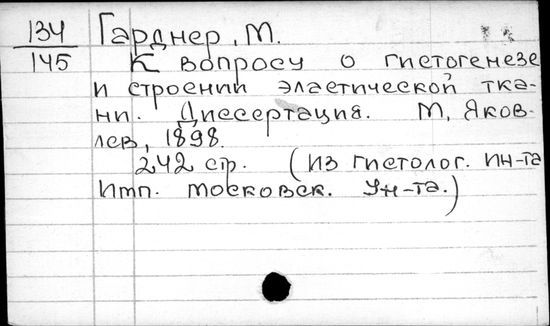 134 Гарднер, М.
145 К вопросу о гистогенезе
и строении эластической тка-
ни. Диссертация. М, Яков-
лев, 1898.
242 стр. (из гистолог. ин-та
Имп. Московск. Ун-та.)